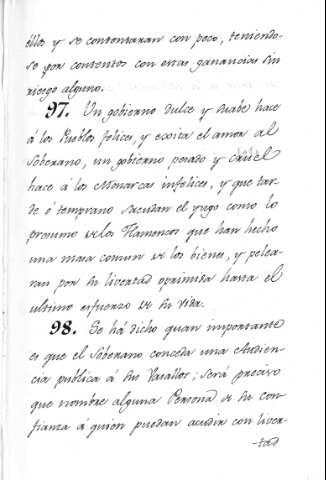 éllos y se contentaran con poco, teniendo-
se por contentos con estas ganancias sin
riesgo alguno.
97. Un gobierno dulce y suabe hace
á los Pueblos felices, y excita el amor al
Soberano, un gobierno pesado y cruel
hace á los Monarcas infelices, y que tar-
de ó temprano sacudan el yugo como lo
presumo de los Flamencos que han hecho
una masa comun de los bienes, y pelea-
ran por su livertad oprimida hasta el
ultimo esfuerzo de su vida.
98. Se há dicho quan importante
es que el Soberano conceda una Audien-
cia publica á sus Vasallos; será preciso
que nombre alguna Persona de su con-
fianza á quien puedan acudir con liver-
-tad